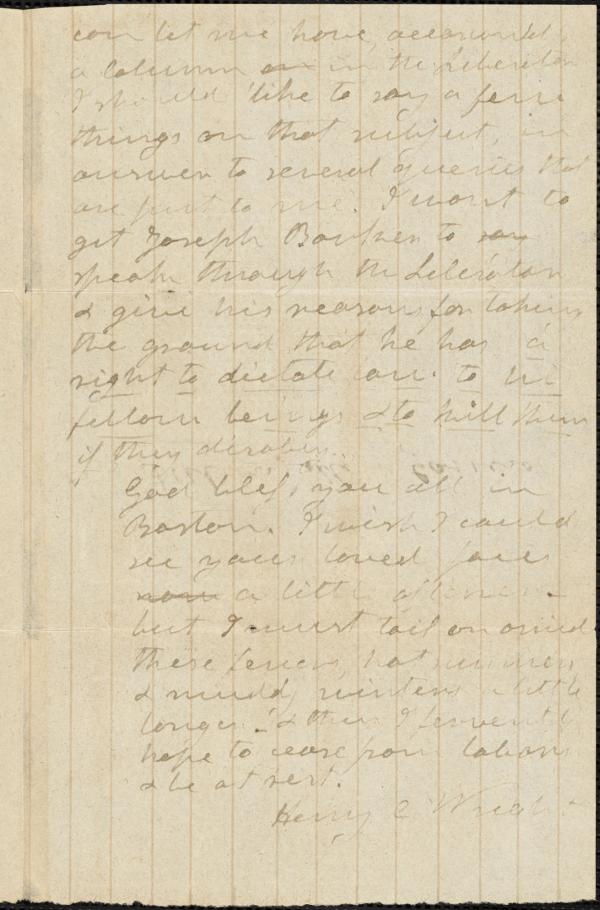 can let me have, occasionally,
a column or in the Liberator
I should like to say a few
things on that subject, in
answer to several queries that
are put to me. I want to
get Joseph Barker to say
speak through the Liberator
& give his reasons for taking
the ground that he has a
right to dictate law to his
fellow beings & to kill them
if they disobey.
God bless you all in
Boston. I wish I could
see your loved faces
now a little oftener.
but I must toil on amid
these fevers, hot summers
& muddy winters a little
longer! & then I fervently
hope to cease from labors
& be at rest.
Henry C Wright